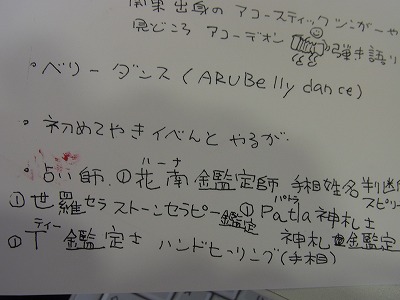 関東出身のアコースティックシンガーや
見どころ アコーデオン 弾き語り
・ベリーダンス(ARUBelly dance)
・初めてやきイベんと やるが
・占い師 ①花南 鑑定師 手相姓名判断
ハーナ
スピリー
①世羅セラ ストーンセラピー鑑定 ① Patla神札士
パトラ
神札鑑定
① T 鑑定士 ハンドヒーリング(手相)
ティー